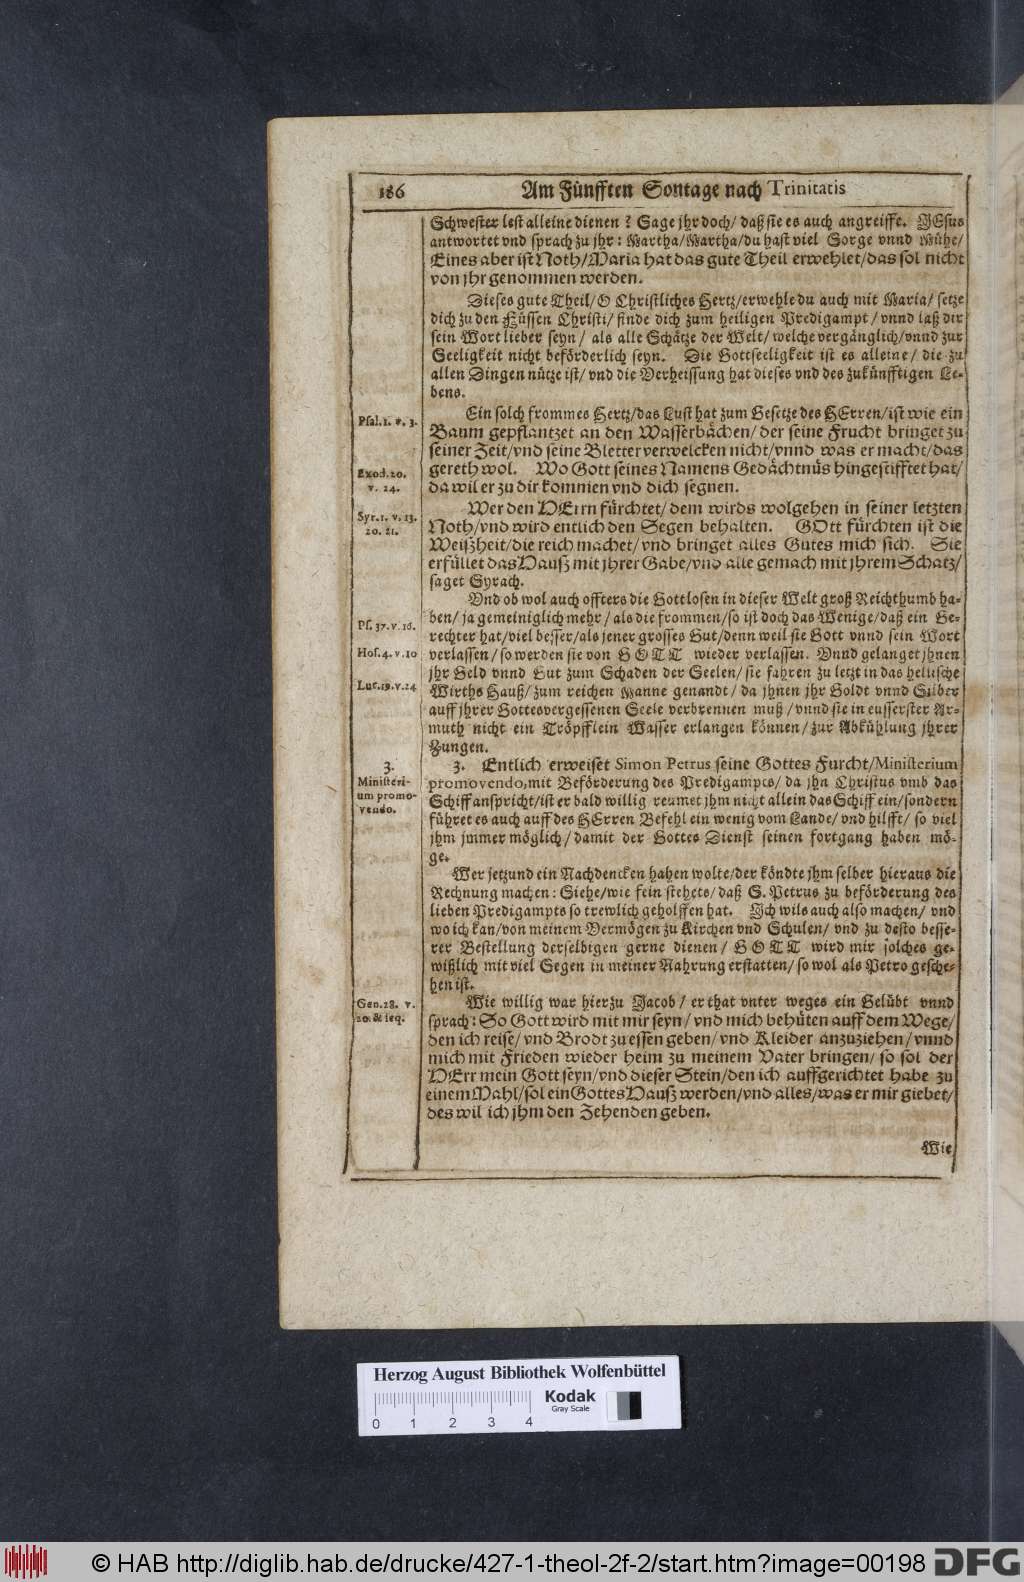 186 Am Fünfften Sontage nach Trinitatis
Schwester lest alleine dienen? Sage jhr doch/ daß sie es auch angreiffe. JEsus
antwortet vnd sprach zu jhr: Martha/Martha/du hast viel Sorge vnnd Mühe/
Eines aber ist Noth/Maria hat das gute Theil erwehlet/das sol nicht
von jhr genommen werden.
Dieses gute Theil/O Christliches Hertz/erwehle du auch mit Maria/ setze
dich zu den Füssen Christi/ finde dich zum heiligen Predigampt/ vnnd laß dir
sein Wort lieber seyn/ als alle Schätze der Welt/ welche vergänglich/vnnd zur
Seeligkeit nicht beförderlich seyn. Die Gottseeligkeit ist es alleine/ die zu
allen Dingen nütze ist/ vnd die Verheissung hat dieses vnd des zukünfftigen Le-
bens.
Psal.1. v. 3.
Ein solch frommes Hertz/das Lust hat zum Gesetze des HErren/ist wie ein
Baum gepflantzet an den Wasserbächen/der seine Frucht bringet zu
seiner Zeit/vnd seine Bletter verwelcken nicht/vnnd was er macht/das
Exod.20.
v. 24.
gereth wol. Wo Gott seines Namens Gedächtnüs hingestifftet hat/
da wil er zu dir kommen vnd dich segnen.
Syr.1. v. 13.
20. 21.
Wer den HErrn fürchtet/ dem wirds wolgehen in seiner letzten
Noth/vnd wird entlich den Segen behalten. GOtt fürchten ist die
Weißheit/die reich machet/vnd bringet alles Gutes mich sich. Sie
erfüllet das Hauß mit jhrer Gabe/vnd alle gemach mit jhrem Schatz/
saget Syrach.
Vnd ob wol auch offters die Gottlosen in dieser Welt groß Reichthumb ha-
Ps. 37. v. 16.
ben/ ja gemeiniglich mehr/ als die frommen/so ist doch das Wenige/daß ein Ge-
rechter hat/viel besser/als jener grosses Gut/denn weil sie Gott vnnd sein Wort
Hos. 4. v. 10
verlassen/so werden sie von GOTT wieder verlassen. Vnnd gelanget jhnen
jhr Geld vnnd Gut zum Schaden der Seelen/ sie fahren zu letzt in das hellische
Luc. 19. v. 24
Wirths Hauß/ zum reichen Manne genandt/ da jhnen jhr Goldt vnnd Silber
auff jhrer Gottesvergessenen Seele verbrennen muß/vnnd sie in eusserster Ar-
muth nicht ein Tröpfflein Wasser erlangen können/zur Abkühlung jhrer
Zungen.
3.
Ministeri-
um promo-
vendo.
3. Entlich erweiset Simon Petrus seine Gottes Furcht/Ministerium
promovendo, mit Beförderung des Predigampts/ da jhn Christus vmb das
Schiff anspricht/ist er bald willig reumet jhm nicht allein das Schiff ein/sondern
führet es auch auff des HErren Befehl ein wenig vom Lande/ vnd hilfft/ so viel
jhm jmmer möglich/damit der Gottes Dienst seinen fortgang haben mö-
ge.
Wer jetzund ein Nachdencken haben wolte/der köndte jhm selber hieraus die
Rechnung machen: Siehe/wie fein stehets/ daß S. Petrus zu beförderung des
lieben Predigampts so trewlich geholffen hat. Ich wils auch also machen/ vnd
wo ich kan/von meinem Vermögen zu Kirchen vnd Schulen/ vnd zu desto besse-
rer Bestellung derselbigen gerne dienen/ GOTT wird mir solches ge-
wißlich mit viel Segen in meiner Nahrung erstatten/so wol als Petro gesche-
hen ist.
Gen.28. v.
20. & seq.
Wie willig war hierzu Jacob/ er that vnter weges ein Gelübt vnnd
sprach: So Gott wird mit mir seyn/ vnd mich behüten auff dem Wege/
den ich reise/ vnd Brodt zu essen geben/ vnd Kleider anzuziehen/vnnd
mich mit Frieden wieder heim zu meinem Vater bringen/ so sol der
HErr mein Gott seyn/vnd dieser Stein/den ich auffgerichtet habe zu
einem Mahl/sol ein Gottes Hauß werden/vnd alles/was er mir giebet/
des wil ich jhm den Zehenden geben.
Wie
Herzog August Bibliothek Wolfenbüttel
Kodak
Gray Scale
0 1 2 3 4
© HAB http://diglib.hab.de/drucke/427-1-theol-2f-2/start.htm?image=00198 DFG